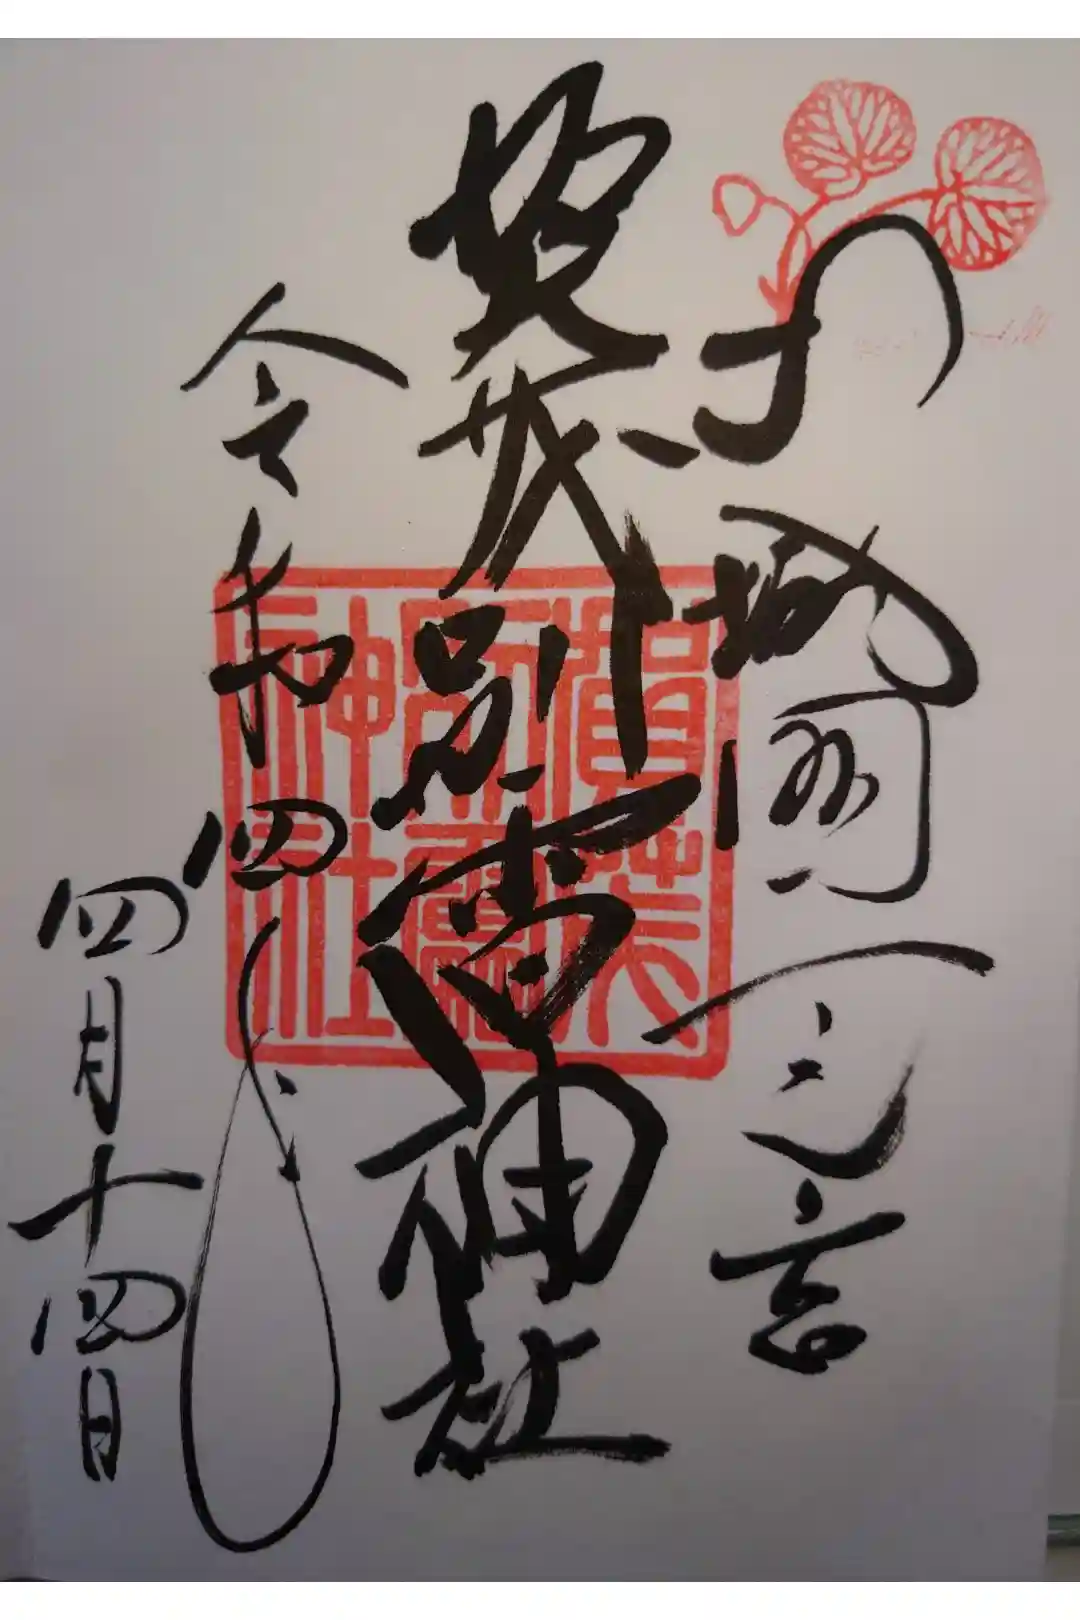 山城国一之宮
賀茂別雷神社
令和四年
四月十四日
賀茂
別雷
神社